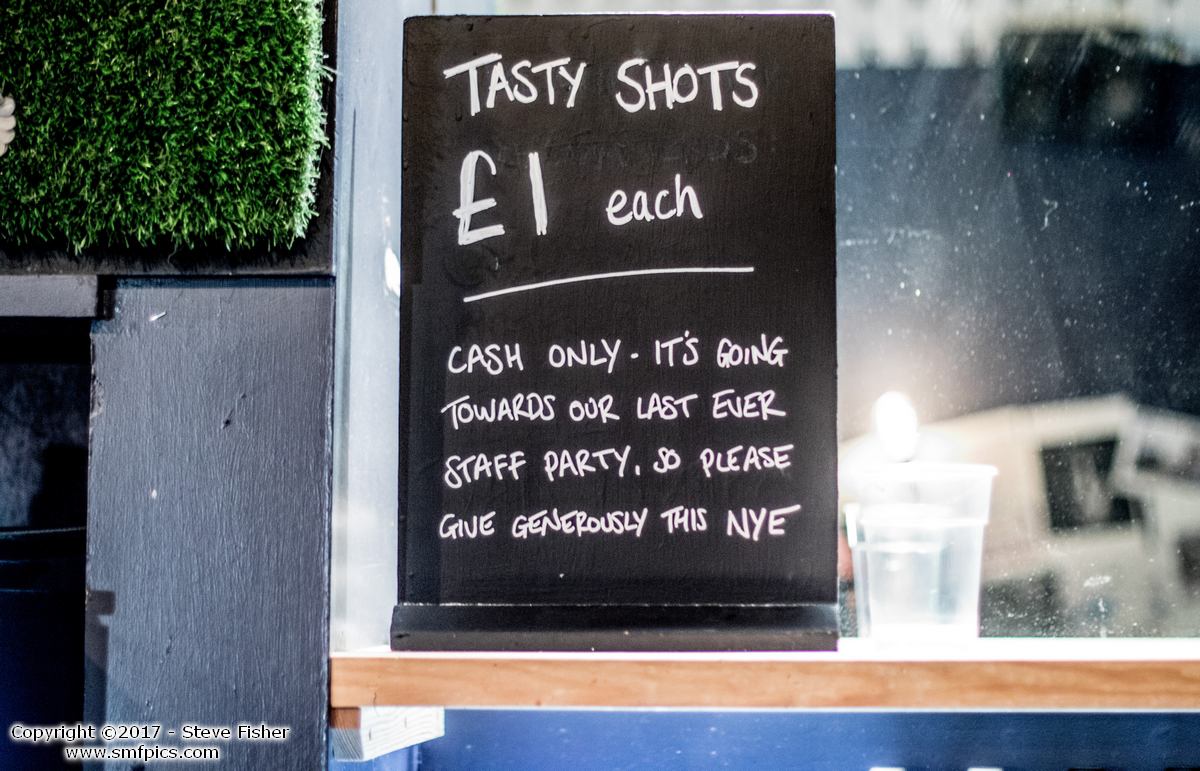 TASTY SHOTS
£1 each
CASH ONLY - IT'S GOING
TOWARDS OUR LAST EVER
STAFF PARTY, SO PLEASE
GIVE GENEROUSLY THIS NYE
Copyright ©2017 - Steve Fisher
www.smfpics.com